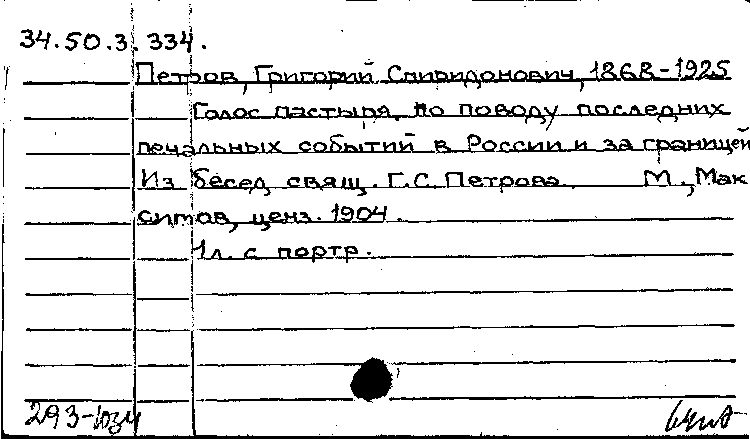 34.50.3.334.
Петров, Григорий Спиридонович, 1868-1925
Голос пастыря. По поводу последних
печальных событий в России и за границей
Из бесед свящ. Г.С. Петрова. М., Мак
симов, ценз. 1904.
1л. с портр.
293-юзч